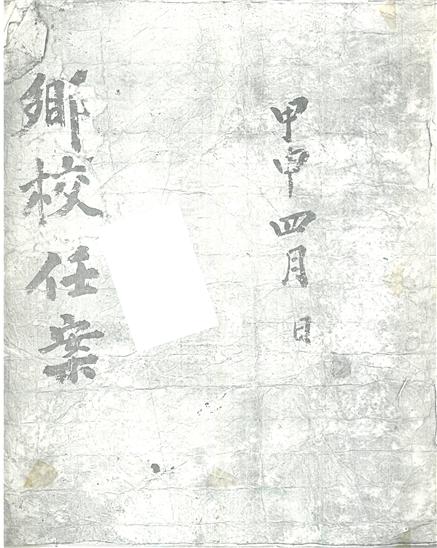 甲申四月 日
鄕校任案